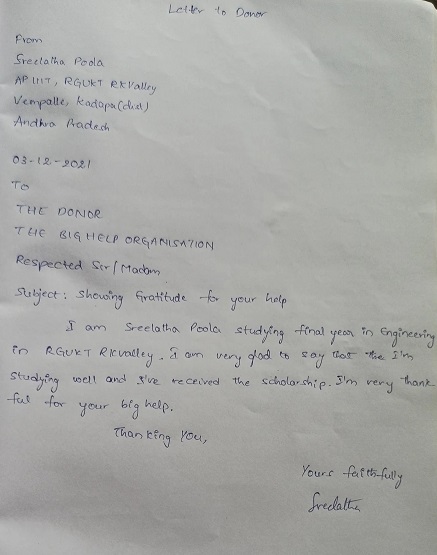 Letter to Donor
From
Sreelatha Poola
AP IIIT, RGUKT RKValley
Vempalle, Kadapa(dist)
Andhra Pradesh
03-12-2021
To
THE DONOR
THE BIG HELP ORGANISATION
Respected Sir/Madam
Subject: Showing Gratitude for your help
I am Sreelatha Poola studying final year in Engineering
in RGUKT RKValley. I am very glad to say that the I'm
studying well and I've received the scholarship. I'm very thank
ful for your big help.
Thanking You,
Yours faithfully
Sreelatha